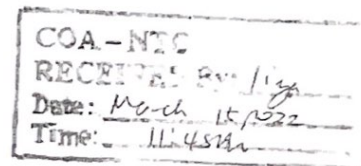 COA-NTC
RECEIVED By:
Date: March 15, 2022
Time: 11:45